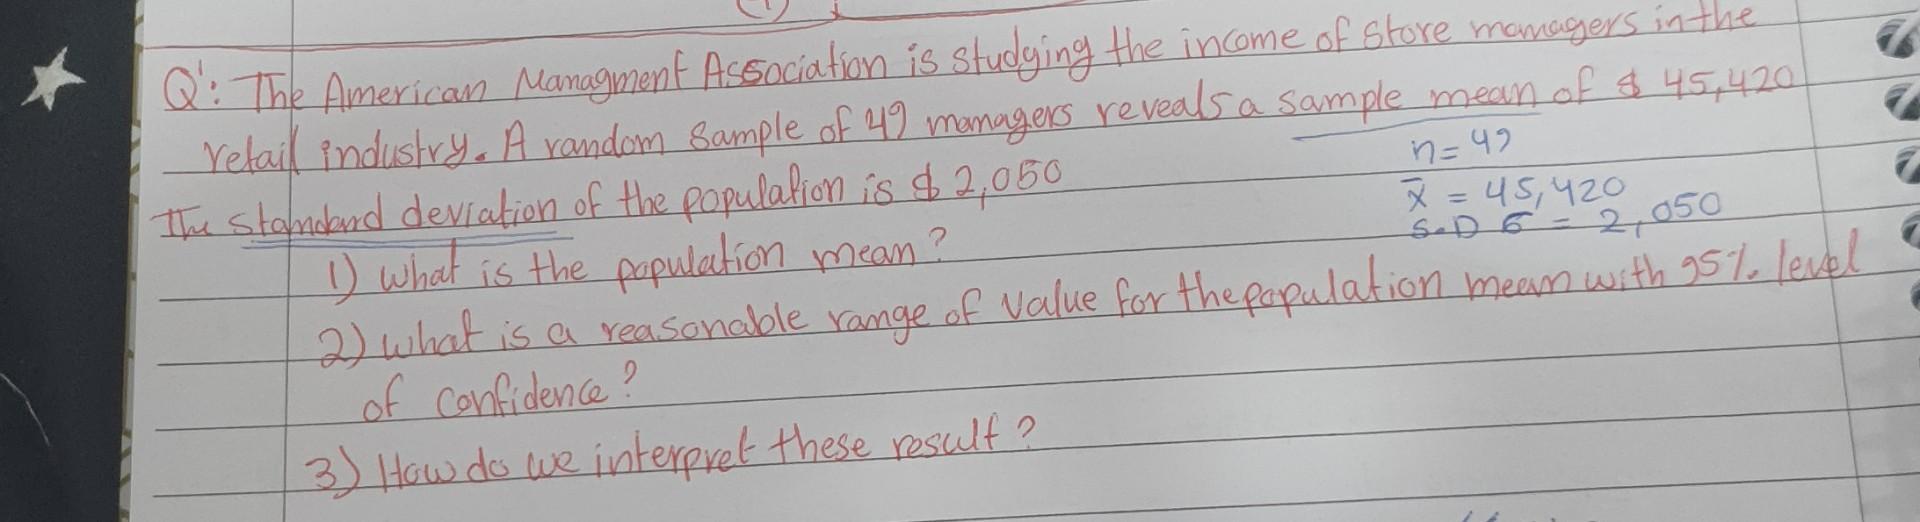 (1)
Q1: The American Managment Association is studying the income of store managers in the
retail industry. A random sample of 49 managers reveals a sample mean of $ 45,420
n = 49
The standard deviation of the population is $ 2,050
x̄ = 45,420
S.D σ = 2,050
1) what is the population mean?
2) what is a reasonable range of value for the population mean with 95% level
of confidence?
3) How do we interpret these result?